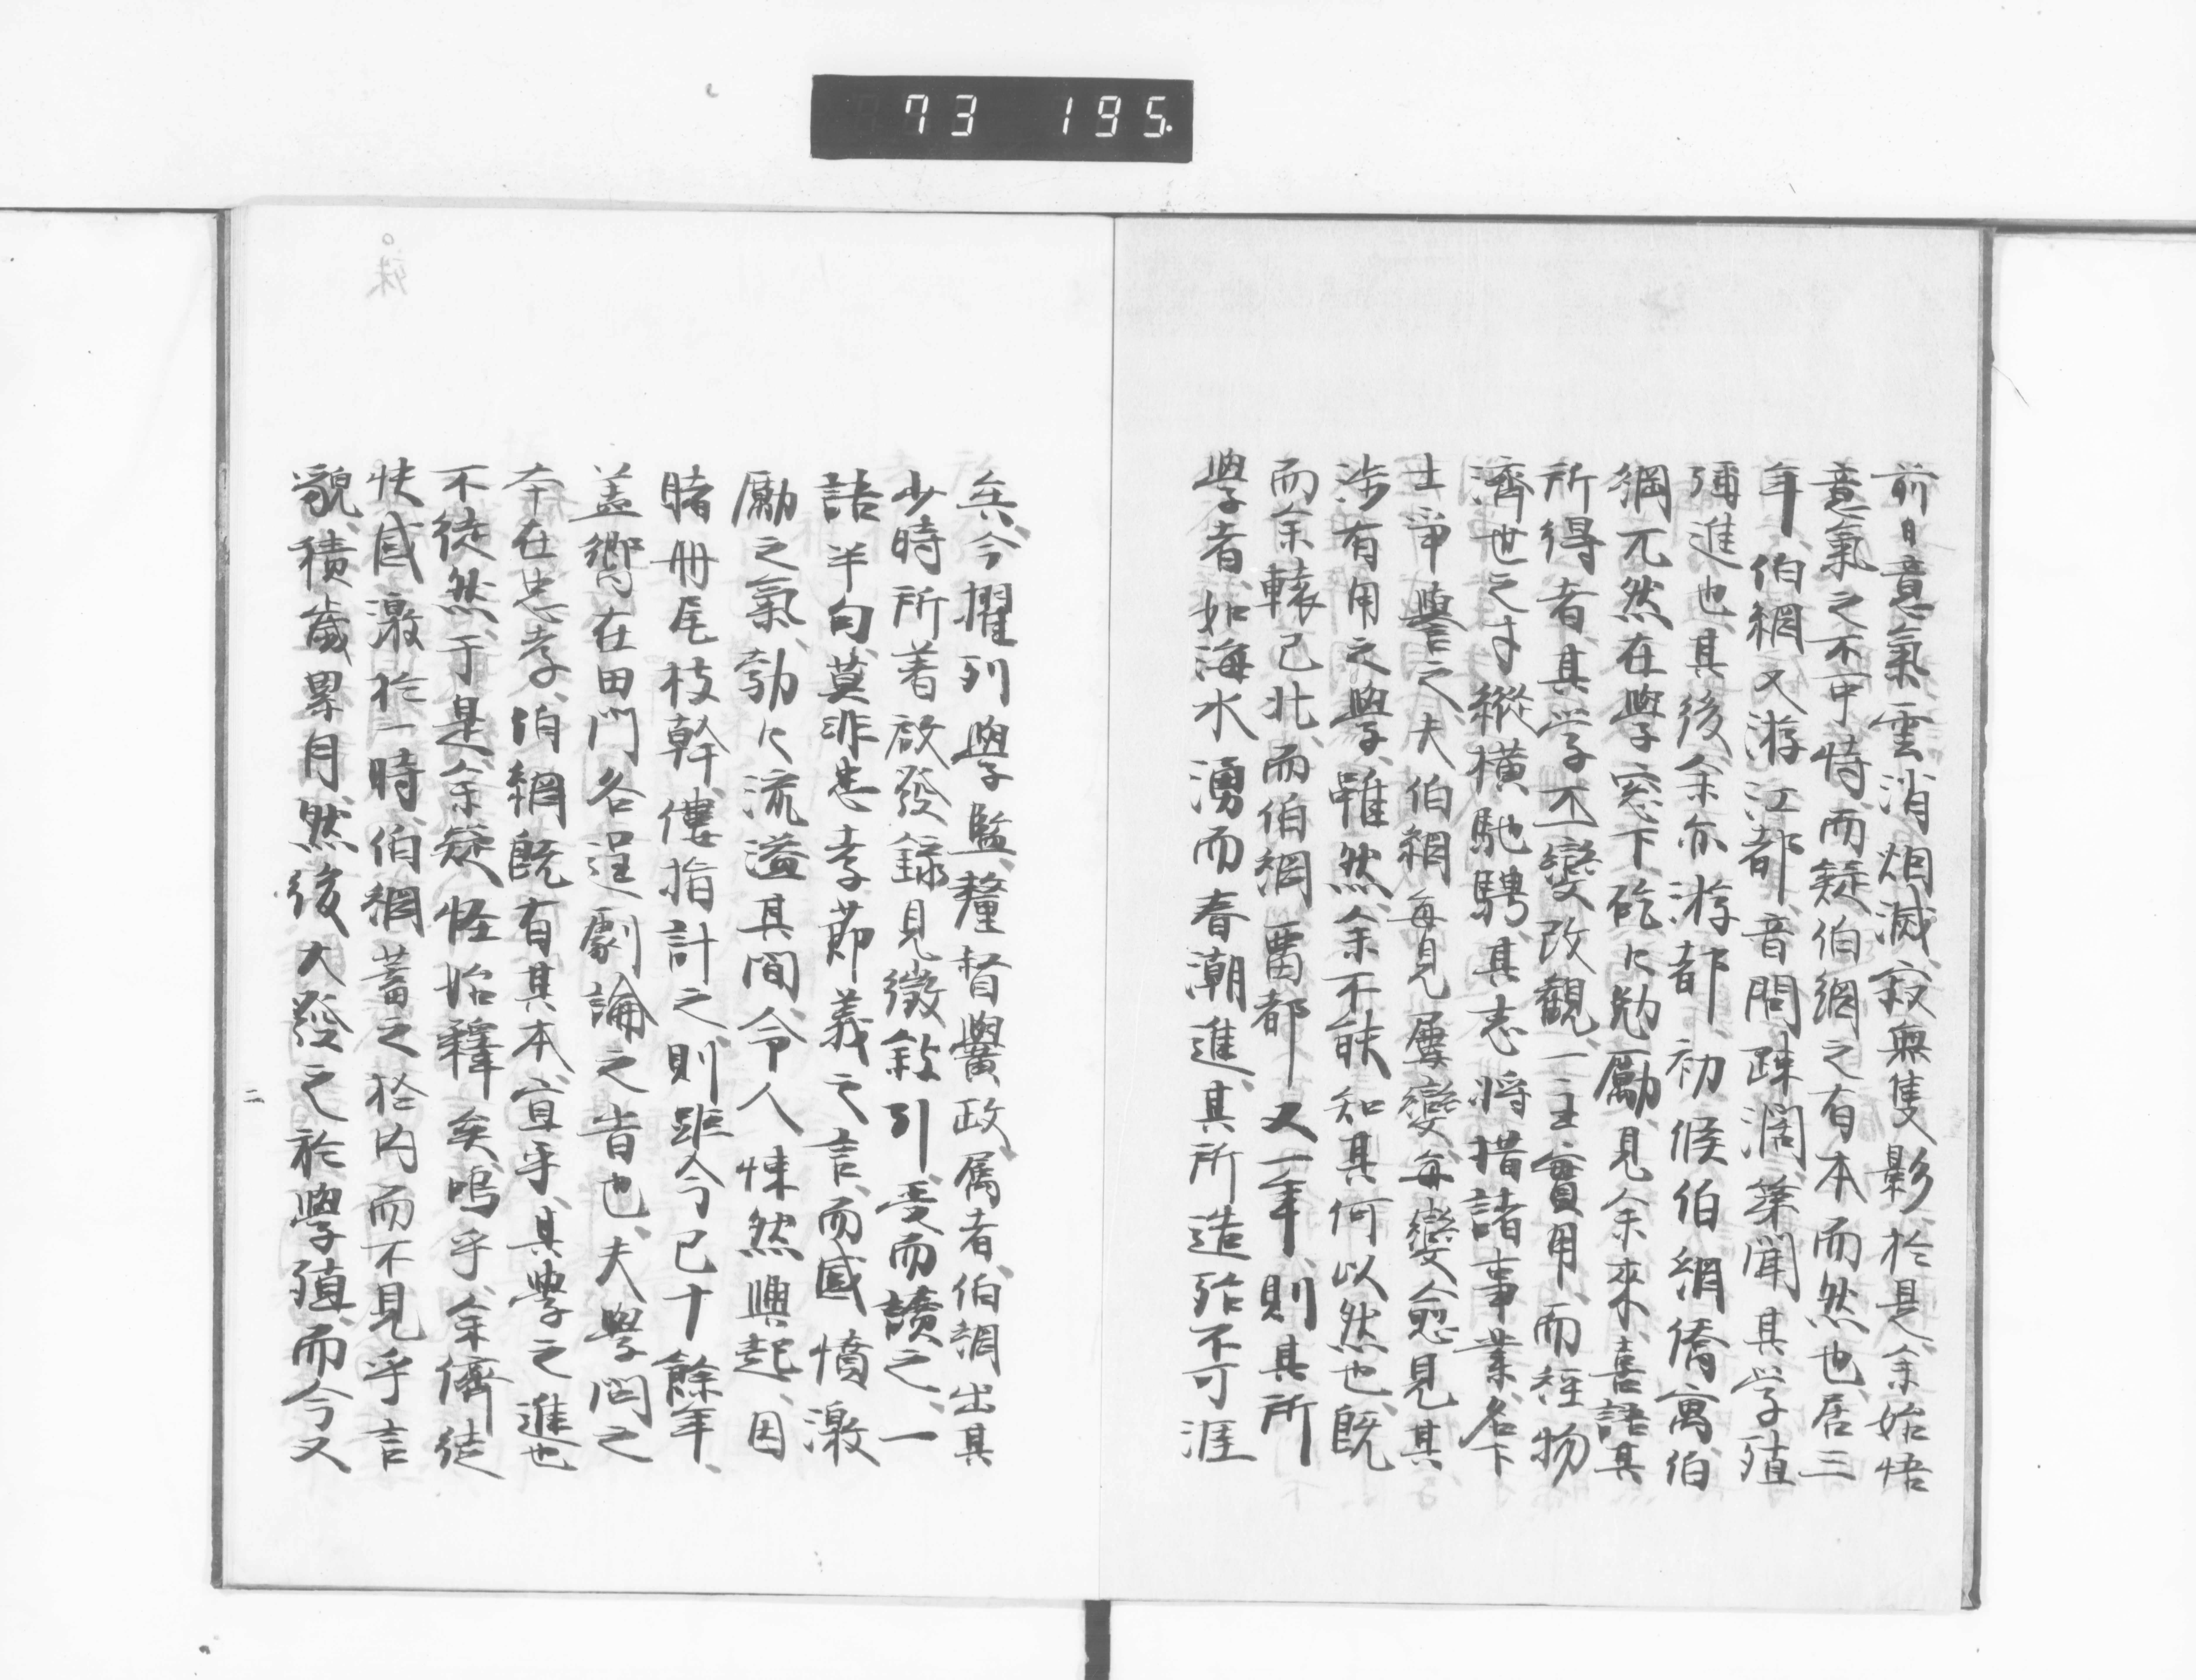 73 195.
前日意氣、雲消烟滅、寂無隻影、於是余始悟
意氣之不可恃、而疑伯綱之有本而然也、居三
年、伯綱又游江都、音問踈濶、葉聞其学殖
彌進也、其後余亦游都、初候伯綱僑寓、伯
綱兀然在學窓下、矻々勉勵、見余來、喜語其
所得者、其学丕變改觀、一主實用、而経物
濟世之才、縱横馳騁、其志將措諸事業、名下
士爭譽之、夫伯綱每見屢變、每變愈見其
渉有用之學、雖然余不能知其何以然也、既
而余轅已北、而伯綱畱都、又一年、則其所
學者、如海水湧而春潮進、其所造殆不可涯
矣、今擢列學監、釐督黌政属者、伯綱出其
少時所著啟發錄見徵敘引、受而讀之、一
語半句、莫非忠孝莭義之言、而感憤激
勵之氣、勃々流溢其間、令人悚然興起、因
睹册尾枝幹、僂指計之、則距今已十餘年、
盖嚮在田門各逞劇論之昔也、夫學問之
本在忠孝、伯綱既有其本、宜乎、其學之進也
不徒然、于是余疑怪始釋矣、嗚乎、余儕徒
快感激於一時、伯綱蓄之於内而不見乎言
貌、積歳累月、然後大發之於學殖、而今又
二